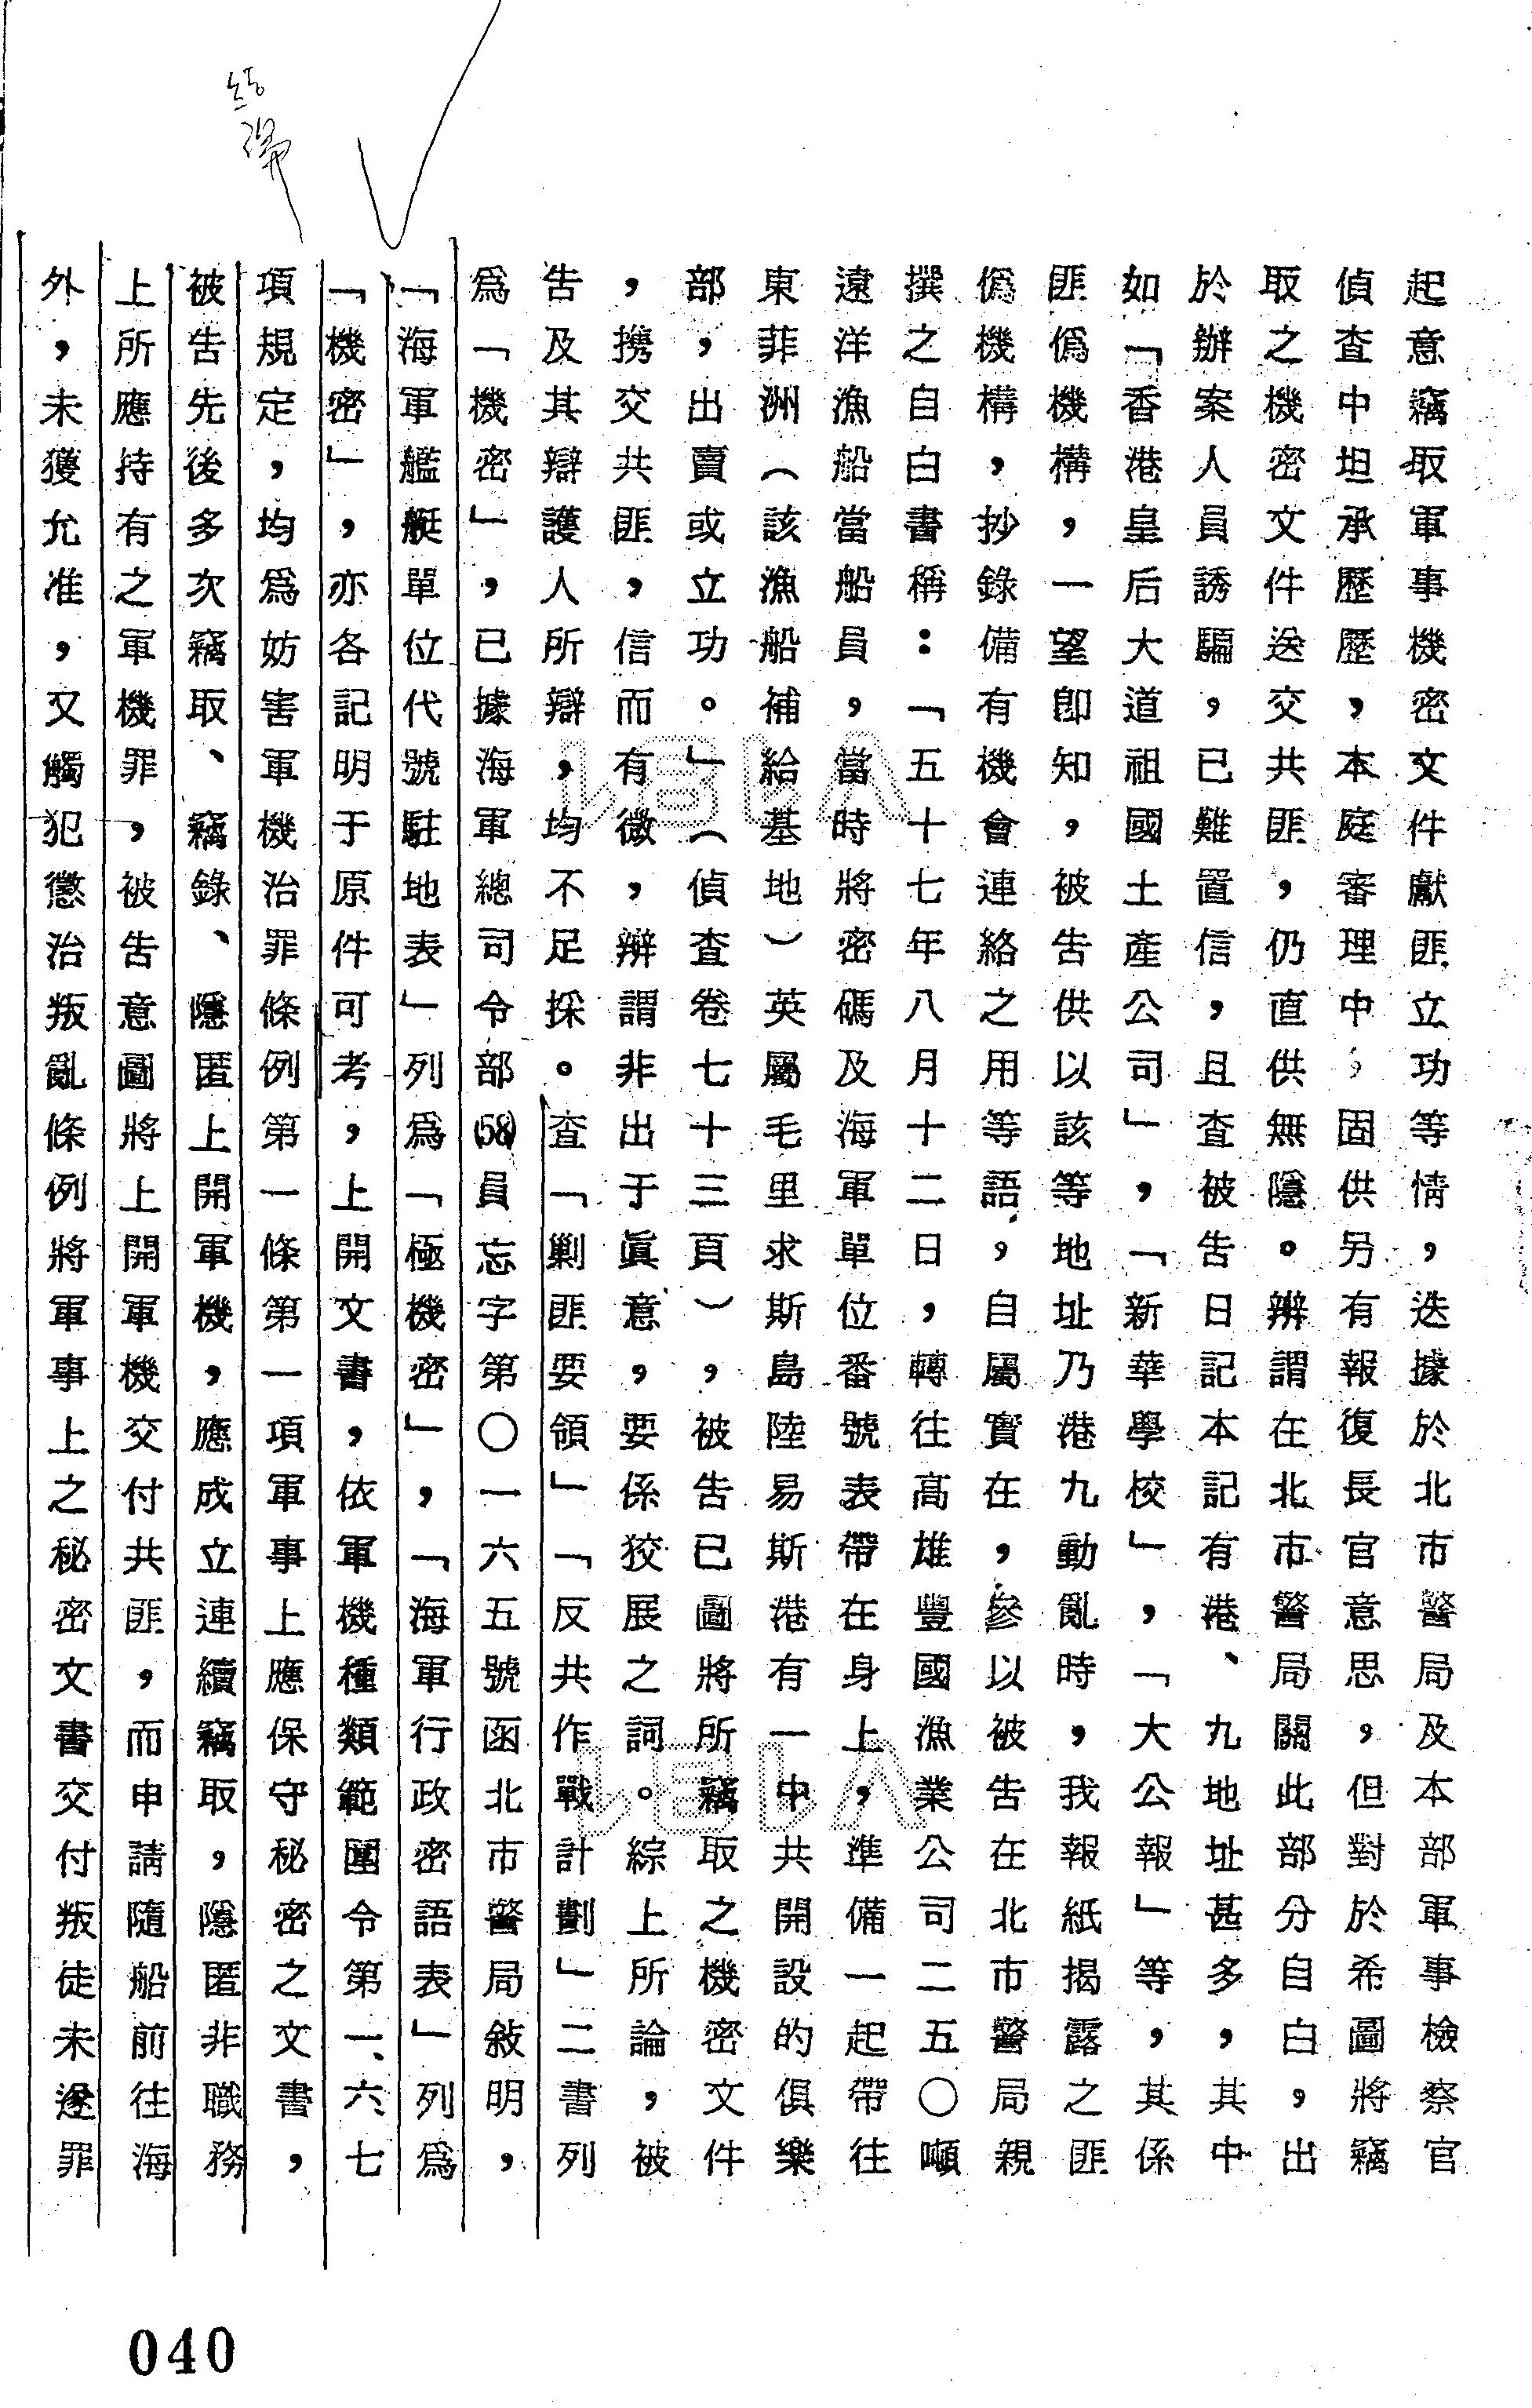 起意竊取軍事機密文件獻匪立功等情,迭據於北市警局及本部軍事檢察官
偵查中坦承歷歷,本庭審理中,固供另有報復長官意思,但對於希圖將竊
取之機密文件送交共匪,仍直供無隱。辨謂在北市警局關此部分自白,出
於辦案人員誘騙,已難置信,且查被告日記本記有港、九地址甚多,其中
如「香港皇后大道祖國土產公司」,「新華學校」,「大公報」等,其係
匪僞機構,一望即知,被告供以該等地址乃港九動亂時,我報紙揭露之匪
僞機構,抄錄備有機會連絡之用等語,自屬實在,參以被告在北市警局親
撰之自白書稱:「五十七年八月十二日,轉往高雄豐國漁業公司二五〇噸
遠洋漁船當船員,當時將密碼及海軍單位番號表帶在身上,準備一起帶往
東菲洲(該漁船補給基地)英屬毛里求斯島陸易斯港有一中共開設的俱樂
部,出賣或立功。」(偵查卷七十三頁),被告已圖將所竊取之機密文件
,携交共匪,信而有徵,辨謂非出于眞意,要係狡展之詞。綜上所論,被
告及其辯護人所辯,均不足採。查「剿匪要領」「反共作戰計劃」二書列
爲「機密」,已據海軍總司令部(58)員忘字第〇一六五號函北市警局敍明,
「海軍艦艇單位代號駐地表」列爲「極機密」,「海軍行政密語表」列爲
「機密」,亦各記明于原件可考,上開文書,依軍機種類範圍令第一、六、七
項規定,均爲妨害軍機治罪條例第一條第一項軍事上應保守秘密之文書,
被告先後多次竊取、竊錄、隱匿上開軍機,應成立連續竊取,隱匿非職務
上所應持有之軍機罪,被告意圖將上開軍機交付共匪,而申請隨船前往海
外,未獲允准,又觸犯懲治叛亂條例將軍事上之秘密文書交付叛徒未遂罪
040